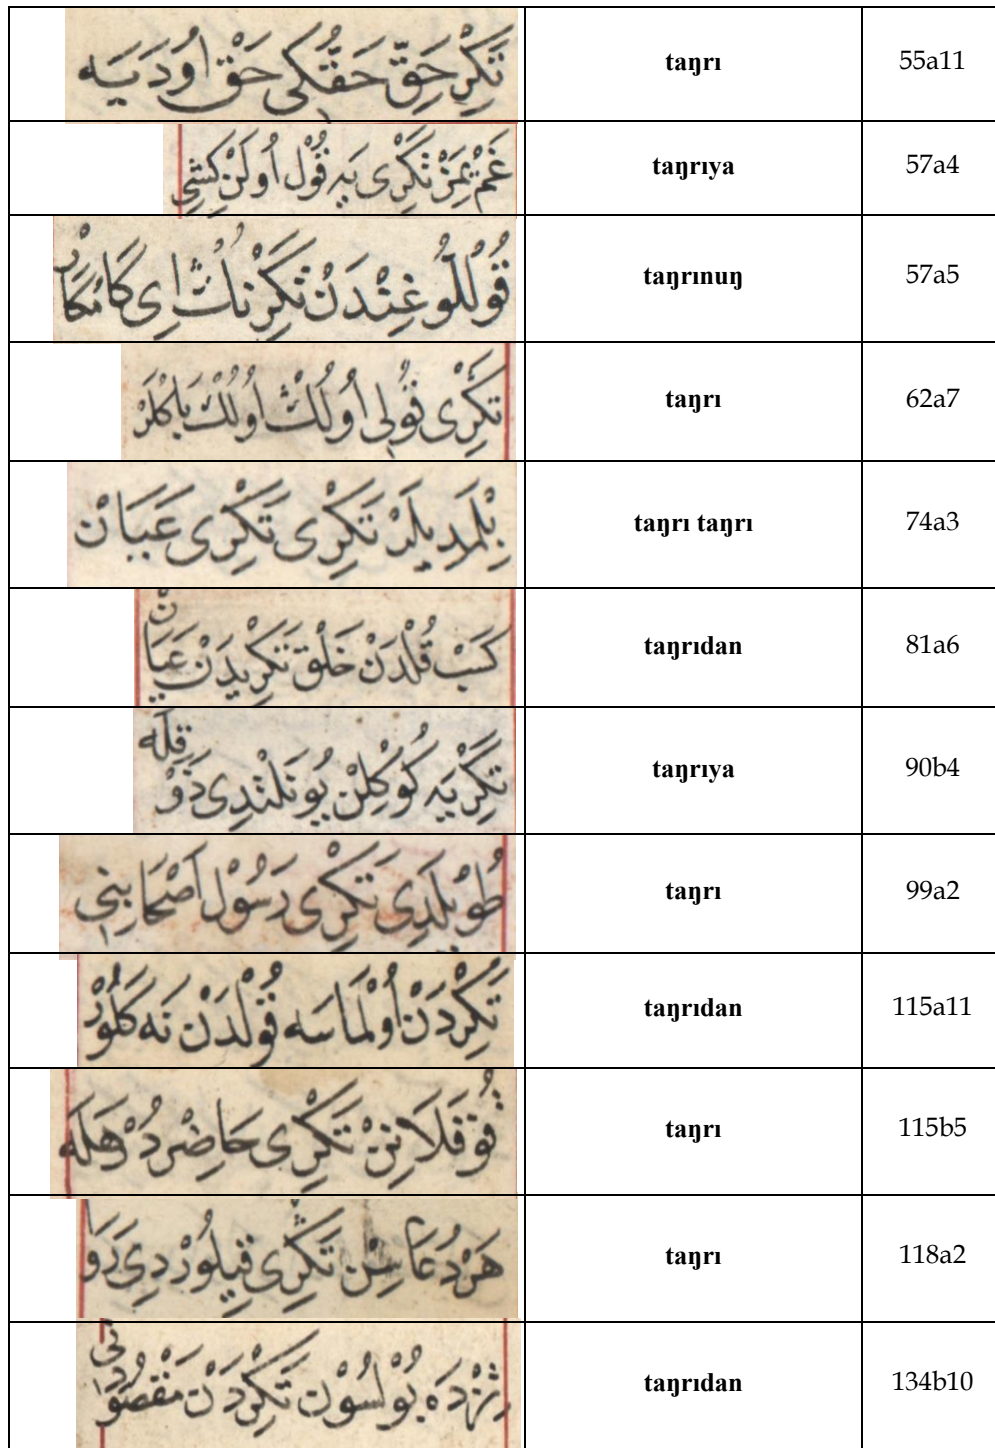 تَكْرِ حَقّ حَقُّكِى حَقْ اُودَيَه taŋrı 55a11
غَمْ يِمَزْ تَكْرِى يَه قُولْ اُولَنْ كِشِى taŋrıya 57a4
قُوللُوغِنْدَنْ تَكْرِنُكْ اِى كَامْكَارْ taŋrınuŋ 57a5
تَكْرِى قُولِى اُولُكْ اُولُكْ بَاكْلَرْ taŋrı 62a7
بِلْمَدِيلَرْ تَكْرِى تَكْرِى عَيَانْ taŋrı taŋrı 74a3
كَسْبْ قُلْدَنْ خَلْق تَكْرِيدَنْ عَيَانْ taŋrıdan 81a6
تَكْرِيَه كُوكِلِنْ يُونَلْتْدِى ذَوْقِلَه taŋrıya 90b4
طُويْلَدِى تَكْرِى رَسُولْ اَصْحَابِنِى taŋrı 99a2
تَكْرِدَنْ اُولْمَاسَه قُولْدَنْ نَه كَلُورْ taŋrıdan 115a11
تَكْرِى حَاضِرْدُرْ هَلَه taŋrı 115b5
هَرْ دُعَاسِنْ تَكْرِى قِيلُورْدِى رَوَا taŋrı 118a2
بُولْسُونْ تَكْرِدَنْ مَقْصُودِنِى taŋrıdan 134b10